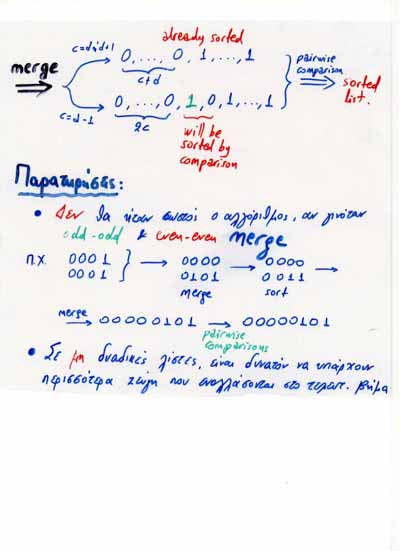 already sorted
c=d+1
0,...,0,1,...,1
c+d
merge
pairwise comparison
sorted list.
c=d-1
0,...,0,1,0,1,...,1
2c
will be
sorted by
comparison
Παρατηρήσεις:
• Δεν θα ήταν σωστός ο αλγόριθμος, αν γινόταν
odd-odd & even-even merge
π.χ. 0001 } → 0000 → 0000 →
0001 0101 0011
merge sort
merge → 00000101 → 00000101
pairwise
comparisons
• Σε μη δυαδικές λίστες, είναι δυνατόν να υπάρχουν
περισσότερα ζεύγη που εναλλάσσονται στο τελευτ. βήμα